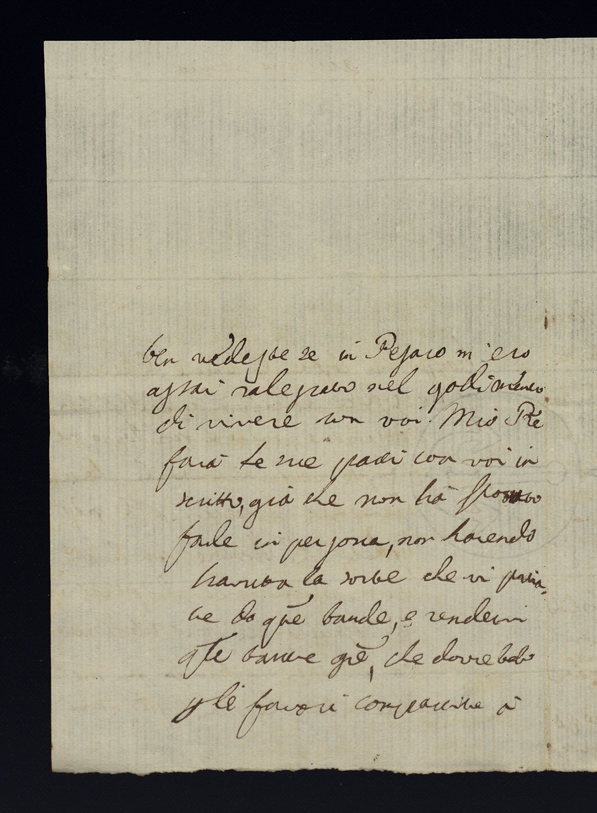 ben vedeste se in Pesaro m'ero
assai ralegrato nel godimento
di vivere con voi. Mio Rè
farà le sue parti con voi in
scritto, già che non hà
farle in persona, non havendo
havuta la sorte che vi
ve da q̃te bande, e rendervi
q̃te grẽ, che dovrebbe
p li favori compartire à